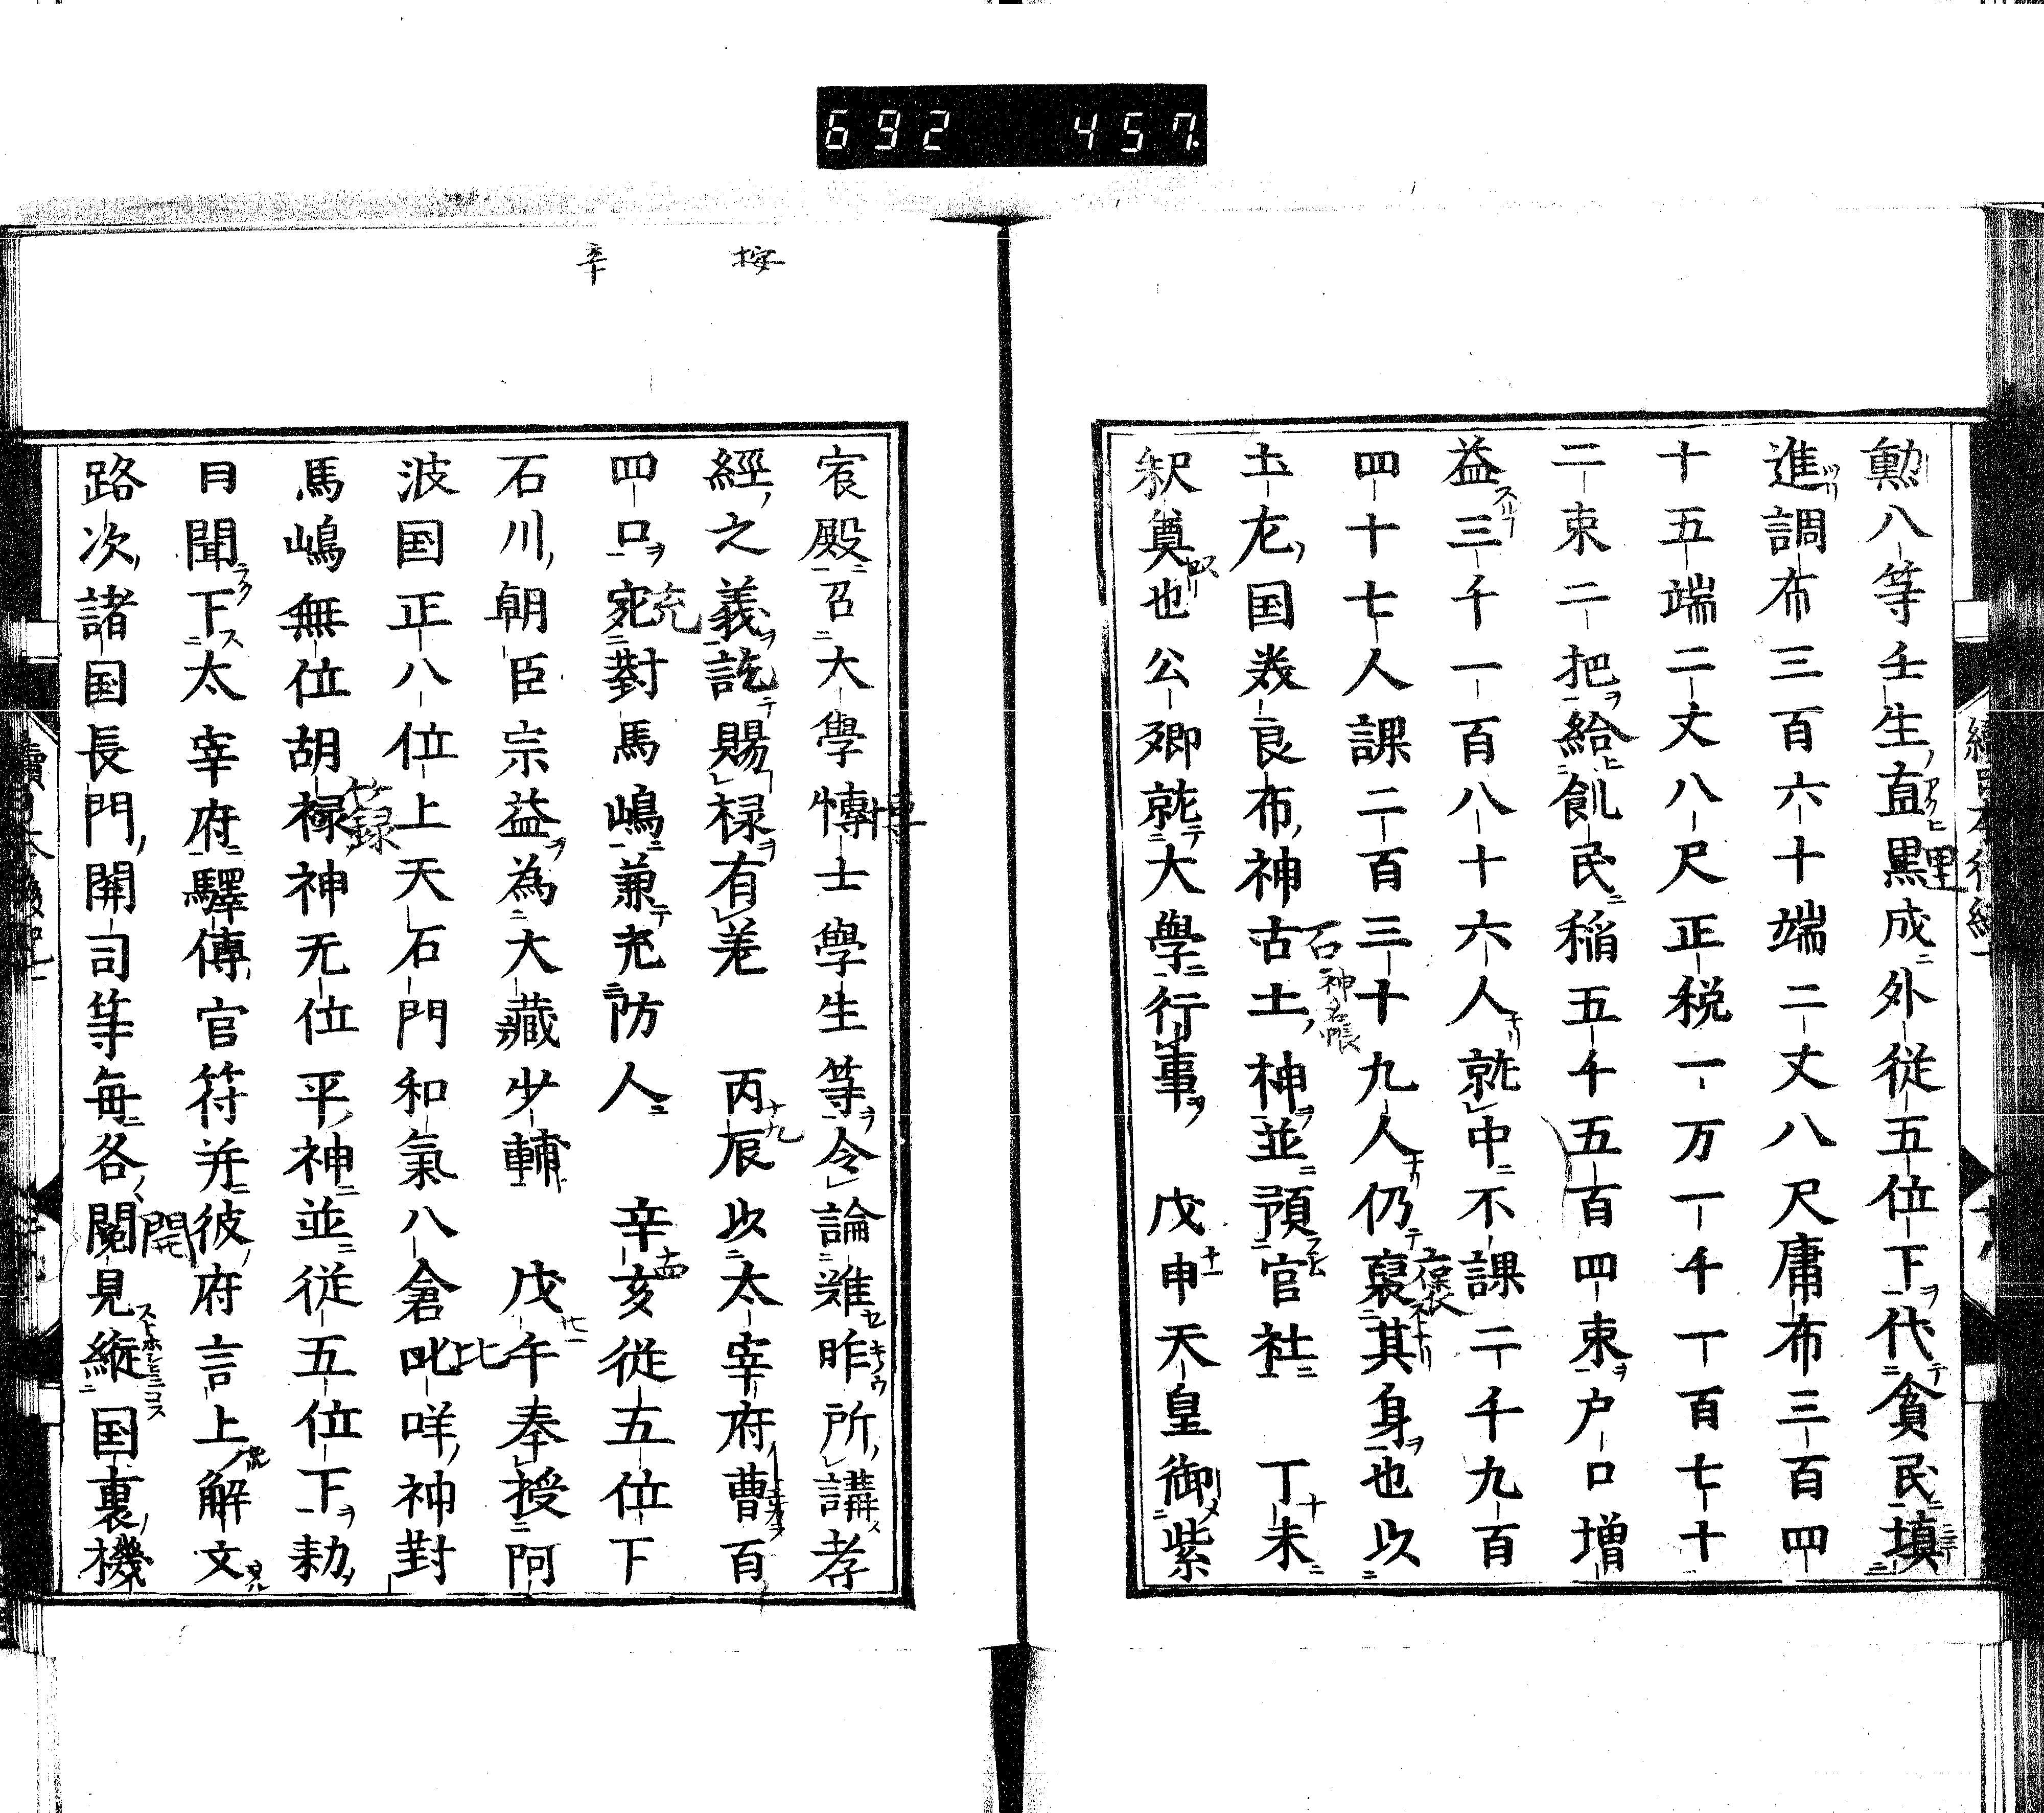 692 457
勳八等壬生直黒成外従五位下代貧民填
進調布三百六十端二丈八尺庸布三百四
十五端二丈八尺正税一万一千一百七十
二束二把給飢民稲五千五百四束戸口増
益三千一百八十六人就中不課二千九百
四十七人課二百三十九人仍襃其身也以
土左国美良布神古土神並預官社 丁未
釈奠也公卿就大學行事 戊申天皇御紫
宸殿召大學博士學生等令論難昨所講孝
經之義訖賜禄有差 丙辰以太宰府曹百
四口宛對馬嶋兼充防人 辛亥従五位下
石川朝臣宗益為大藏少輔 戊午奉授阿
波国正八位上天石門和氣八倉吡咩神對
馬嶋無位胡禄神无位平神並従五位下勅
日聞下太宰府驛傳官符并彼府言上解文
路次諸国長門開司等毎各閲見縦国裏機
按
辛
里
石
神名帳
充
開
比